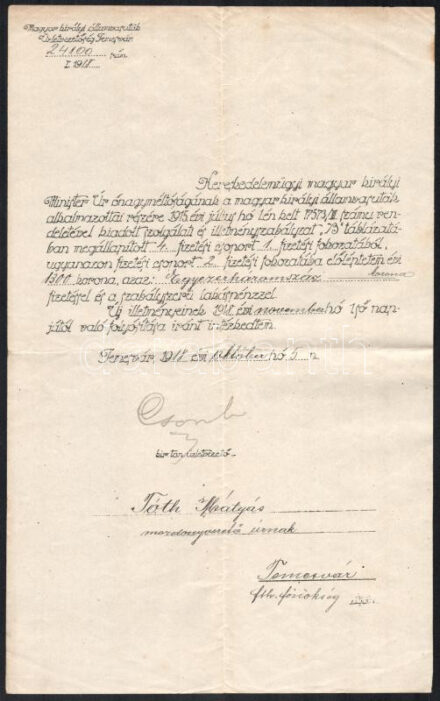 Magyar királyi államvasutak
Üzletvezetőség Temesvár
24100 szám
I. 1918
Kereskedelemügyi magyar királyi
Minister Úr őnagyméltóságának a magyar királyi államvasutak
alkalmazottai részére 1915 évi július hó 1én kelt számú ren-
deletével kiadott szolgálati és illetményszabályzat "B" táblázatá-
ban megállapított 4. fizetési csoport 1 fizetési fokozatából,
ugyanazon fizetési csoport 2 fizetési fokozatába előléptetem évi
1300 korona, azaz: Egyezerháromszáz korona
fizetéssel és a szabályszerű lakáspénzzel.
Uj illetményeinek 1918 évi november hó 1ső nap-
jától való folyósítása iránt intézkedtem.
Temesvár 1918 évi október hó 5 n.
Csonk
üzletvezető.
Tóth Mátyás
mozdonyvezető úrnak
Temesvár
fth. főnökség